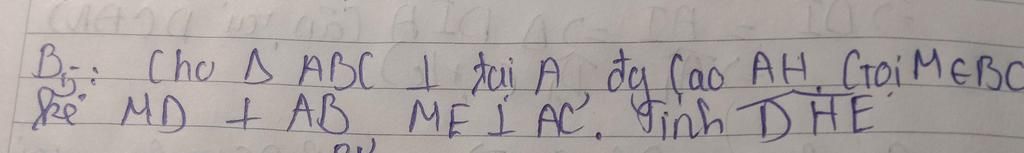 B5: Cho Δ ABC ⊥ tại A, đg cao AH. Gọi M ∈ BC
Kẻ MD ⊥ AB, ME ⊥ AC. Tính DHE